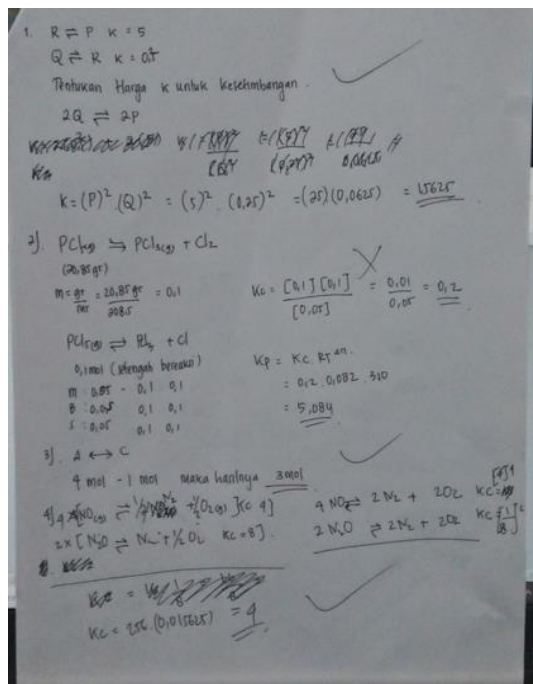 1. R ⇌ P K = 5
Q ⇌ R K = 0,25
Tentukan Harga K untuk kesetimbangan.
2Q ⇌ 2P
K = (P)² . (Q)² = (5)² . (0,25)² = (25) (0,0625) = 1,5625
2). ⇌ PCl₃(g) + Cl₂
(20,85 gr)
m = gr/mr = 20,85 gr/208,5 = 0,1
Kc = [0,1] [0,1]/[0,05] = 0,01/0,05 = 0,2
PCl₅(g) ⇌ PCl₃ + Cl
0,1 mol (setengah bereaksi)
m : 0,05 - 0,1 0,1
B : 0,05 0,1 0,1
S : 0,05 0,1 0,1
Kp = Kc . RT
= 0,2 . 0,082 . 310
= 5,084
3). A ↔ C
4 mol - 1 mol maka hasilnya 3 mol
4)
2 x [ N₂O ⇌ N₂ + ½ O₂ Kc = 8 ].
4 NO ⇌ 2 N₂ + 2O₂ Kc = [4]⁴
2 N₂O ⇌ 2N₂ + 2O₂ Kc = [1/8]²
Kc = 256 . (0,015625) = 4